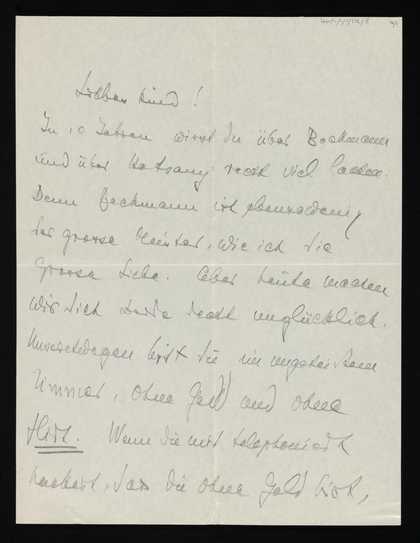 Liebes Kind!
In 10 Jahren wirst Du über Beckmann
und über Katsany recht viel lachen.
Denn Beckmann ist ebensowenig
der grosse Meister, wie ich die
Grosse Liebe. Aber heute machen
wir Dich beide recht unglücklich.
Unseretwegen bist Du im ungeheizten
Zimmer, ohne Geld und ohne
Hirt. Wenn Du mir telephoniert
hättest, dass Du ohne Geld bist,